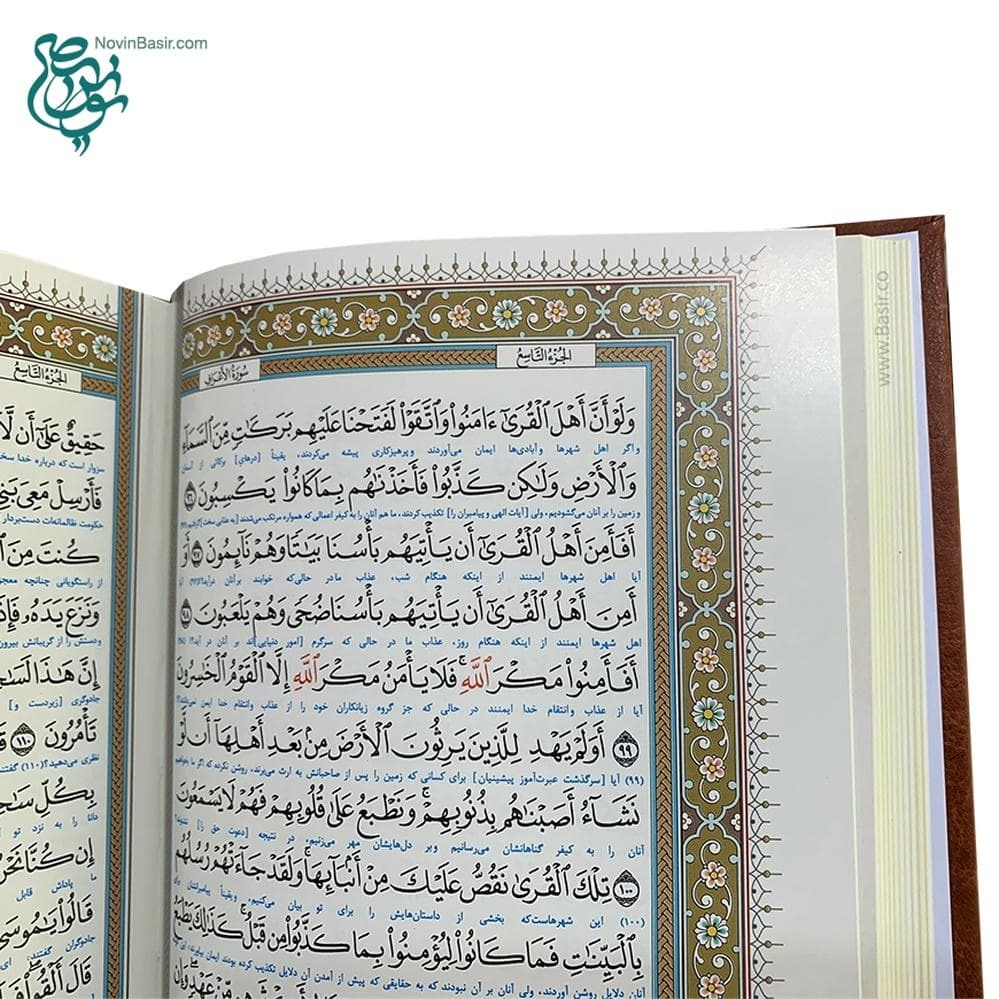 NovinBasir.com
www.Basir.co
الجزء التاسع
سورة الأعراف
وَلَوْ أَنَّ أَهْلَ ٱلْقُرَىٰٓ ءَامَنُوا۟ وَٱتَّقَوْا۟ لَفَتَحْنَا عَلَيْهِم بَرَكَٰتٍ مِّنَ ٱلسَّمَآءِ
واگر اهل شهرها وآبادی‌ها ایمان می‌آوردند وپرهیزکاری پیشه می‌کردند، یقیناً [درهای] برکاتی از آسمان
وَٱلْأَرْضِ وَلَٰكِن كَذَّبُوا۟ فَأَخَذْنَٰهُم بِمَا كَانُوا۟ يَكْسِبُونَ ٩٦
و زمین را بر آنان می‌گشودیم، ولی [آیات الهی و پیامبران را] تکذیب کردند، ما هم آنان را به کیفر اعمالی که همواره مرتکب می‌شدند [به عذابی سخت]
أَفَأَمِنَ أَهْلُ ٱلْقُرَىٰٓ أَن يَأْتِيَهُم بَأْسُنَا بَيَٰتًا وَهُمْ نَآئِمُونَ ٩٧ أَوَ
آیا اهل شهرها ایمنند از اینکه هنگام شب، عذاب ما در حالی‌که خوابند بر آنان درآید؟
أَمِنَ أَهْلُ ٱلْقُرَىٰٓ أَن يَأْتِيَهُم بَأْسُنَا ضُحًى وَهُمْ يَلْعَبُونَ ٩٨
اهل شهرها ایمنند از اینکه هنگام روز، عذاب ما در حالی که سرگرم [امور دنیایی]اند بر آنان در آید؟
أَفَأَمِنُوا۟ مَكْرَ ٱللَّهِ ۚ فَلَا يَأْمَنُ مَكْرَ ٱللَّهِ إِلَّا ٱلْقَوْمُ ٱلْخَٰسِرُونَ
آیا از عذاب و انتقام خدا ایمنند در حالی که جز گروه زیانکاران خود را از عذاب وانتقام خدا ایمن
٩٩ أَوَلَمْ يَهْدِ لِلَّذِينَ يَرِثُونَ ٱلْأَرْضَ مِنۢ بَعْدِ أَهْلِهَآ أَن لَّوْ
(۹۹) آیا [سرگذشت عبرت‌آموز پیشینیان] برای کسانی که زمین را پس از صاحبانش به ارث می‌برند، روشن نکرده که اگر ما بخواهیم
نَشَآءُ أَصَبْنَٰهُم بِذُنُوبِهِمْ ۚ وَنَطْبَعُ عَلَىٰ قُلُوبِهِمْ فَهُمْ لَا يَسْمَعُونَ
آنان را به کیفر گناهانشان می‌رسانیم وبر دل‌هایشان مهر می‌زنیم، در نتیجه [دعوت حق را]
١٠٠ تِلْكَ ٱلْقُرَىٰ نَقُصُّ عَلَيْكَ مِنْ أَنۢبَآئِهَا ۚ وَلَقَدْ جَآءَتْهُمْ رُسُلُهُم
(۱۰۰) این شهرهاست‌که بخشی از داستان‌هایش را برای تو بیان می‌کنیم، و یقیناً پیامبرانشان برای
بِٱلْبَيِّنَٰتِ فَمَا كَانُوا۟ لِيُؤْمِنُوا۟ بِمَا كَذَّبُوا۟ مِن قَبْلُ ۚ كَذَٰلِكَ يَطْبَعُ
آنان دلایل روشن آوردند، ولی آنان بر آن نبودند که به حقایقی که پیش از آمدن آن دلایل تکذیب کرده بودند ایمان بیاورند،
مِّنْ عَهْدٍ ۖ وَإِن
الجزء التاسع
حَقِيقٌ عَلَىٰٓ أَن لَّآ
سزاوار است که درباره خدا سخ
فَأَرْسِلْ مَعِىَ بَنِىٓ
حکومت ظالمانه‌ات دست‌بردار
كُنتَ مِنَ
از راستگویانی چنانچه معجز
وَنَزَعَ يَدَهُۥ فَإِذَا
ودستش را از گریبانش بیرون
إِنَّ هَٰذَا لَسَٰحِ
جادوگری [زبردست و]
تَأْمُرُونَ ١١٠ قَا
نظری می‌دهید؟ (۱۱۰) گفتند
بِكُلِّ سَٰحِ
دانا را به نزد تو
إِن كُنَّا نَحْنُ
ما پاداش قابل
قَالُوا۟ يَٰمُوسَىٰ
جادوگران گفتند: ای
قَالَ أَلْقُوا۟ ۖ فَ